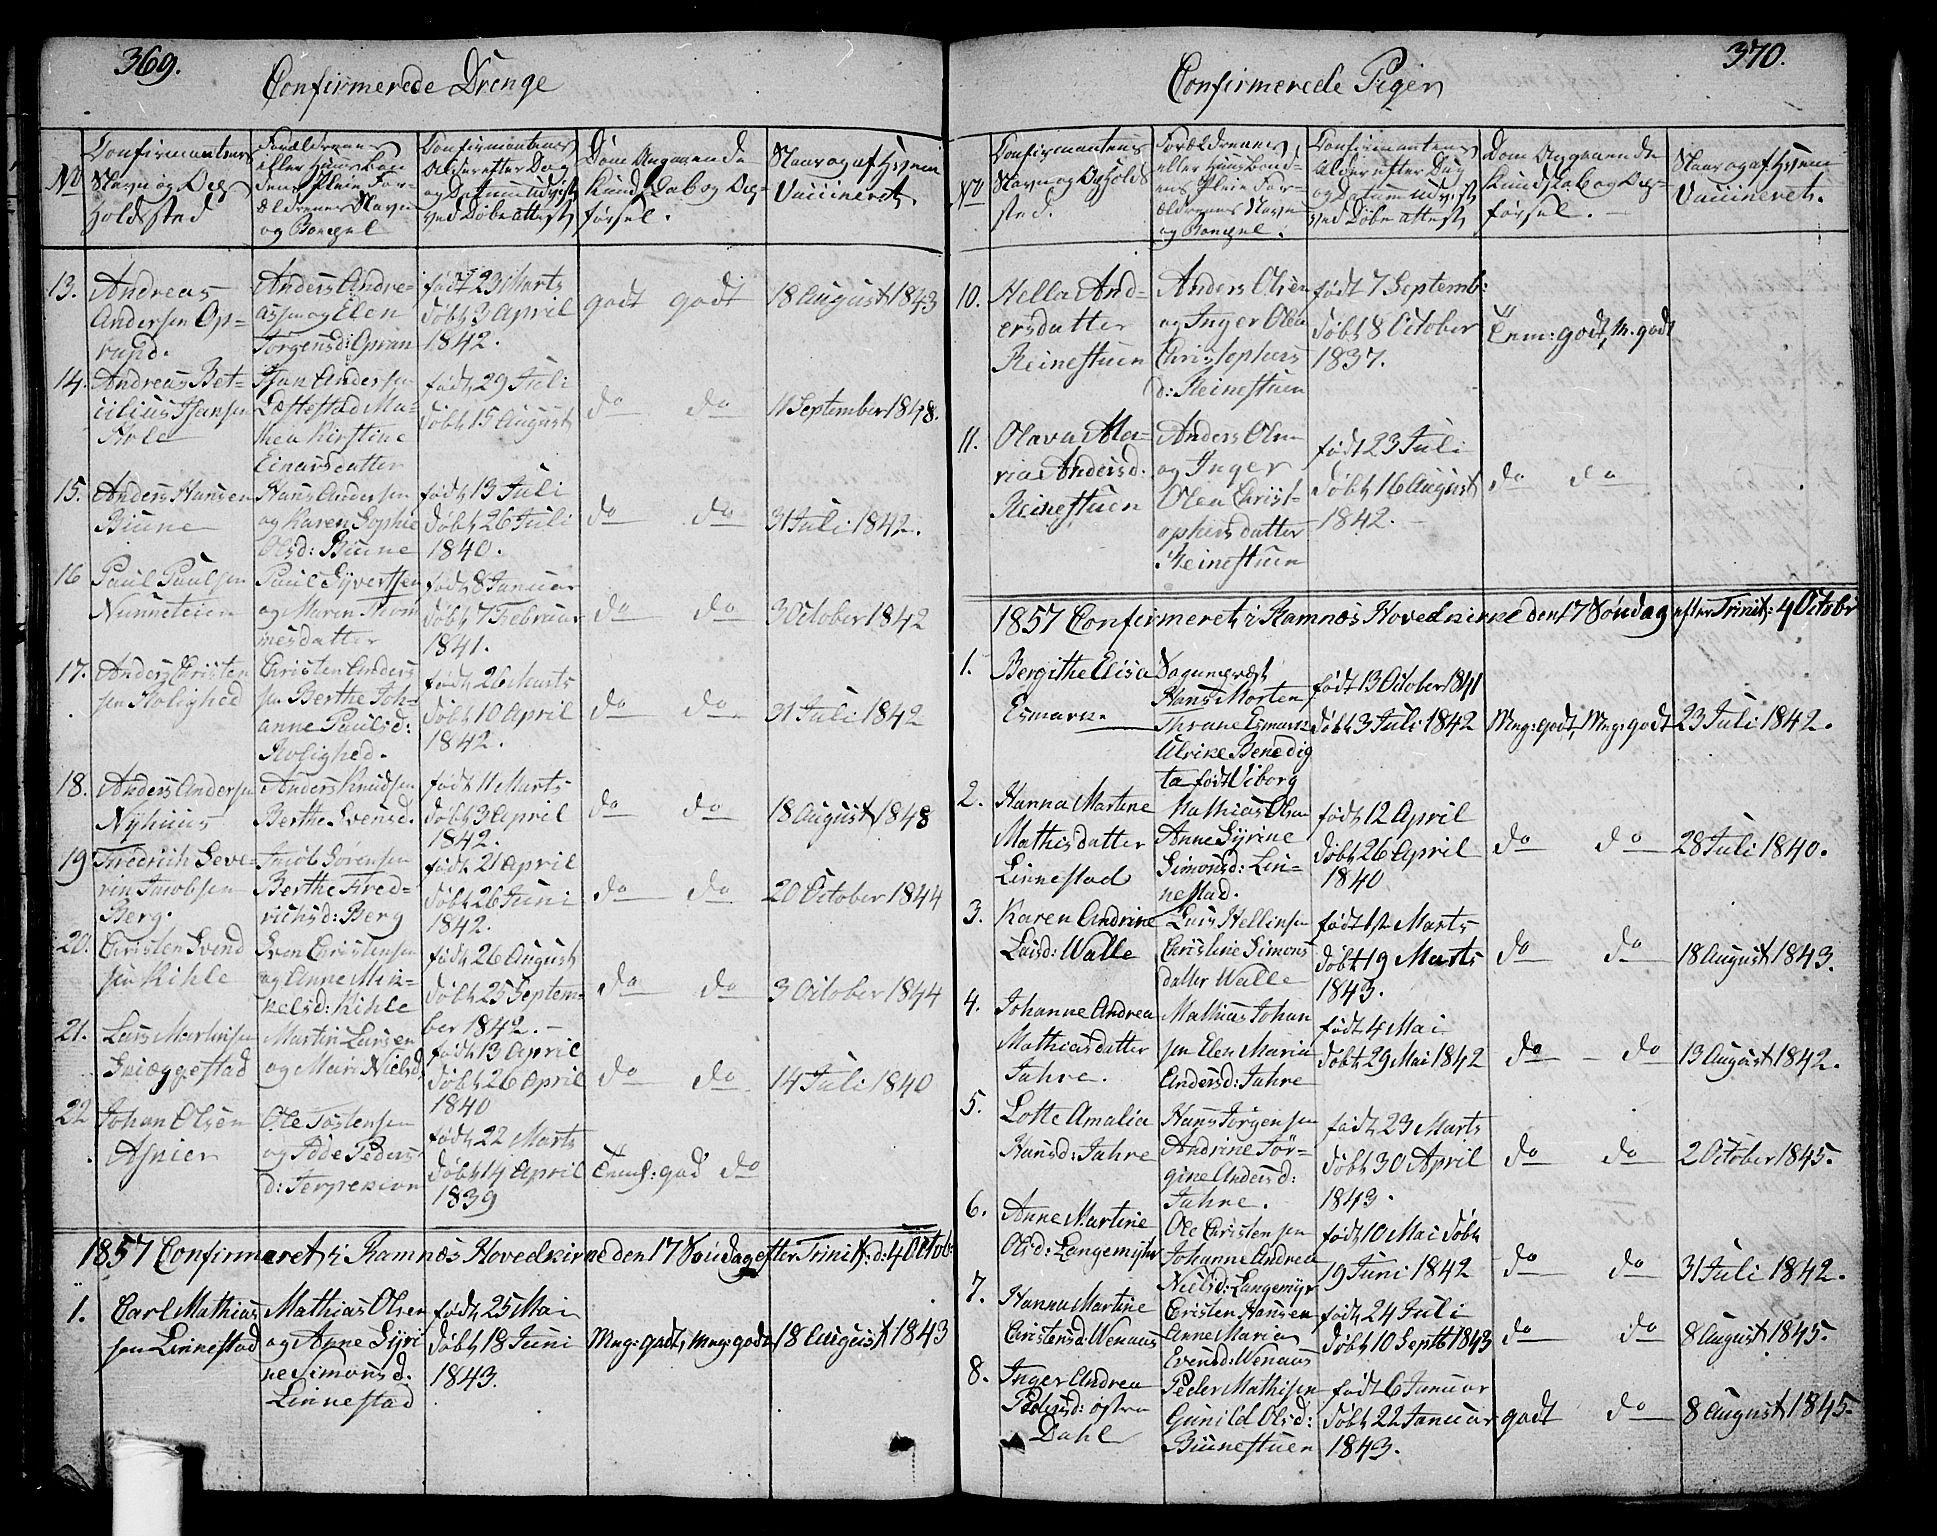 369.
Confirmerede Drenge
No
Confirmantens
Navn og Op
holdssted
Forældrenes
eller Huusbon
dens, Pleie For-
ældrenes Navn
og Bopæl
Confirmantens
Alder efter Dag
og Datum udvist
ved Døbe attest
Dom Angaaende
Kundskab og Op-
førsel.
Naar og af hvem
Vaccineret
13.
Andreas
Andersen Op-
rand.
Anders Andre-
assen og Elen
Jørgensd: Opran
født 23 Marts
døbt 3 April
1842.
godt godt
18 August 1843
14.
Andreas Bet-
cilius Hansen
Hole
Hans Andersen
Læstestad Ma-
thea Kirstine
Einarsdatter
født 29 Juli
døbt 15 August
do do
11 September 1848.
15.
Anders Hansen
Biune
Hans Andersen
og Karen Sophie
Olsd: Biune
født 13 Juli
døbt 26 Juli
1840.
do do
31 Juli 1842.
16
Paul Paulsen
Nunneteien
Paul Syvertsen
og Maren Thom
mesdatter
født 8 Januar
døbt 7 Februar
1841.
do do
3 October 1842
17.
Anders Christen
sen Rolighed
Christen Anders
sen Berthe Joh-
anne Paulsd:
Rolighed.
født 26 Marts
døbt 10 April
1842.
do do
31 Juli 1842
18.
Anders Andersen
Nyhuus
Anders Knudsen
Berthe Svensd.
født 11 Marts
døbt 3 April
1842.
do do
18 August 1848
19
Fredrich Seve-
rin Jacobsen
Berg.
Jacob Sørensen
Berthe Fred-
richsd: Berg
født 21 April
døbt 26 Juni
1842.
do do
20 October 1844
20.
Christen Svend
sen Kihle
Sven Christensen
og Anne Mik-
kelsd: Kihle
født 26 August
døbt 25 Septem-
ber 1842. -
do do
3 October 1844
21.
Lars Martinsen
Sviæggestad
Martin Larsen
og Mari Nielsd
født 13 April
døbt 26 April
1840
do do
14 Juli 1840
22
Johan Olsen
Asnier
Ole Tostensen
og Peders
d:
født 22 Marts
døbt 14 April
1839
Temf: god do
1857 Confirmeret i Ramnæs Hovedkirke den 17 Søndag efter Trinit: d: 4 Octob:
1.
Carl Mathias
sen Linnestad
Mathias Olsen
og Anne Syri
ne Simonsd.
Linnestad
født 25 Mai
døbt 18 Juni
1843.
Meg: godt, Meg: godt
18 August 1843
370.
Confirmerede Piger
No
Confirmantens
Navn og Opholds
sted.
Forældrenes
eller Huusbond-
ens Pleie For-
ældrenes Navn
og Bopæl.
Confirmantens
Alder efter Dag
og Datum udvist
ved Døbe attest
Dom Angaaende
Kundskab og Op-
førsel. -
Naar og af hvem
Vaccineret.
10.
Hella And-
ersdatter
Reinestuen
Anders Olsen
og Inger Olea
Christophers
d: Reinestuen
født 7 Septemb:
døbt 8 October
1837.
Tem: godt, M. godt
11.
Olava Ma-
ria Andersd.
Reinestuen
Anders Olsen
og Inger
Olea Christ-
ophersdatter
Reinestuen
født 23 Juli
døbt 16 August
1842. -
do do
1857 Confirmeret i Ramnæs Hovedkirke den 17 Søndag efter Trinit: 4 Octobr
1.
Bergithe Elisa
Esmark.
Sogneprest
Hans Morten
Thrane Esmark
Ulrike Benedig
ta født Wiborg
født 13 October 1841
døbt 3 Juli 1842
Meg: godt, Meg: godt
23 Juli 1842.
2.
Hanna Martine
Mathisdatter
Linnestad
Mathias Olsen
Anne Syrine
Simonsd: Lin-
nestad.
født 12 April
døbt 26 April
1840
do do
28 Juli 1840.
3.
Karen Andrine
Larsd: Walle
Lars Hellesen
Christine Simons
datter Walle
født 1st Marts
døbt 19 Marts
1843.
do do
18 August 1843.
4.
Johanne Andrea
Mathiasdatter
Jahre.
Mathias Johan
sen Elen Maria
Andersd: Jahre
født 4 Mai
døbt 29 Mai 1842
do - do
13 August 1842.
5.
Lotte Amalia
Hansd: Jahre
Hans Jørgensen
Andrine Jør-
gine Andersd:
Jahre.
født 23 Marts
døbt 30 April
1843.
do do
2 October 1845.
6.
Anne Martine
Olsd: Langemyhr
Ole Christensen
Johanne Andrea
Nielsd: Langemyr
født 10 Mai døbt
19 Juni 1842
do do
31 Juli 1842.
7.
Hanna Martine
Christensd: Wenaas
Christen Hansen
Anne Maria
Evensd: Wenaas
født 24 Juli
døbt 10 Septb 1843
do do
8 August 1845.
8.
Inger Andrea
Pedersd: østre
Dahl
Peder Mathisen
Gunild Olsd:
Biunestuen
født 6 Januar
døbt 22 Januar
1843.
godt do
8 August 1845.